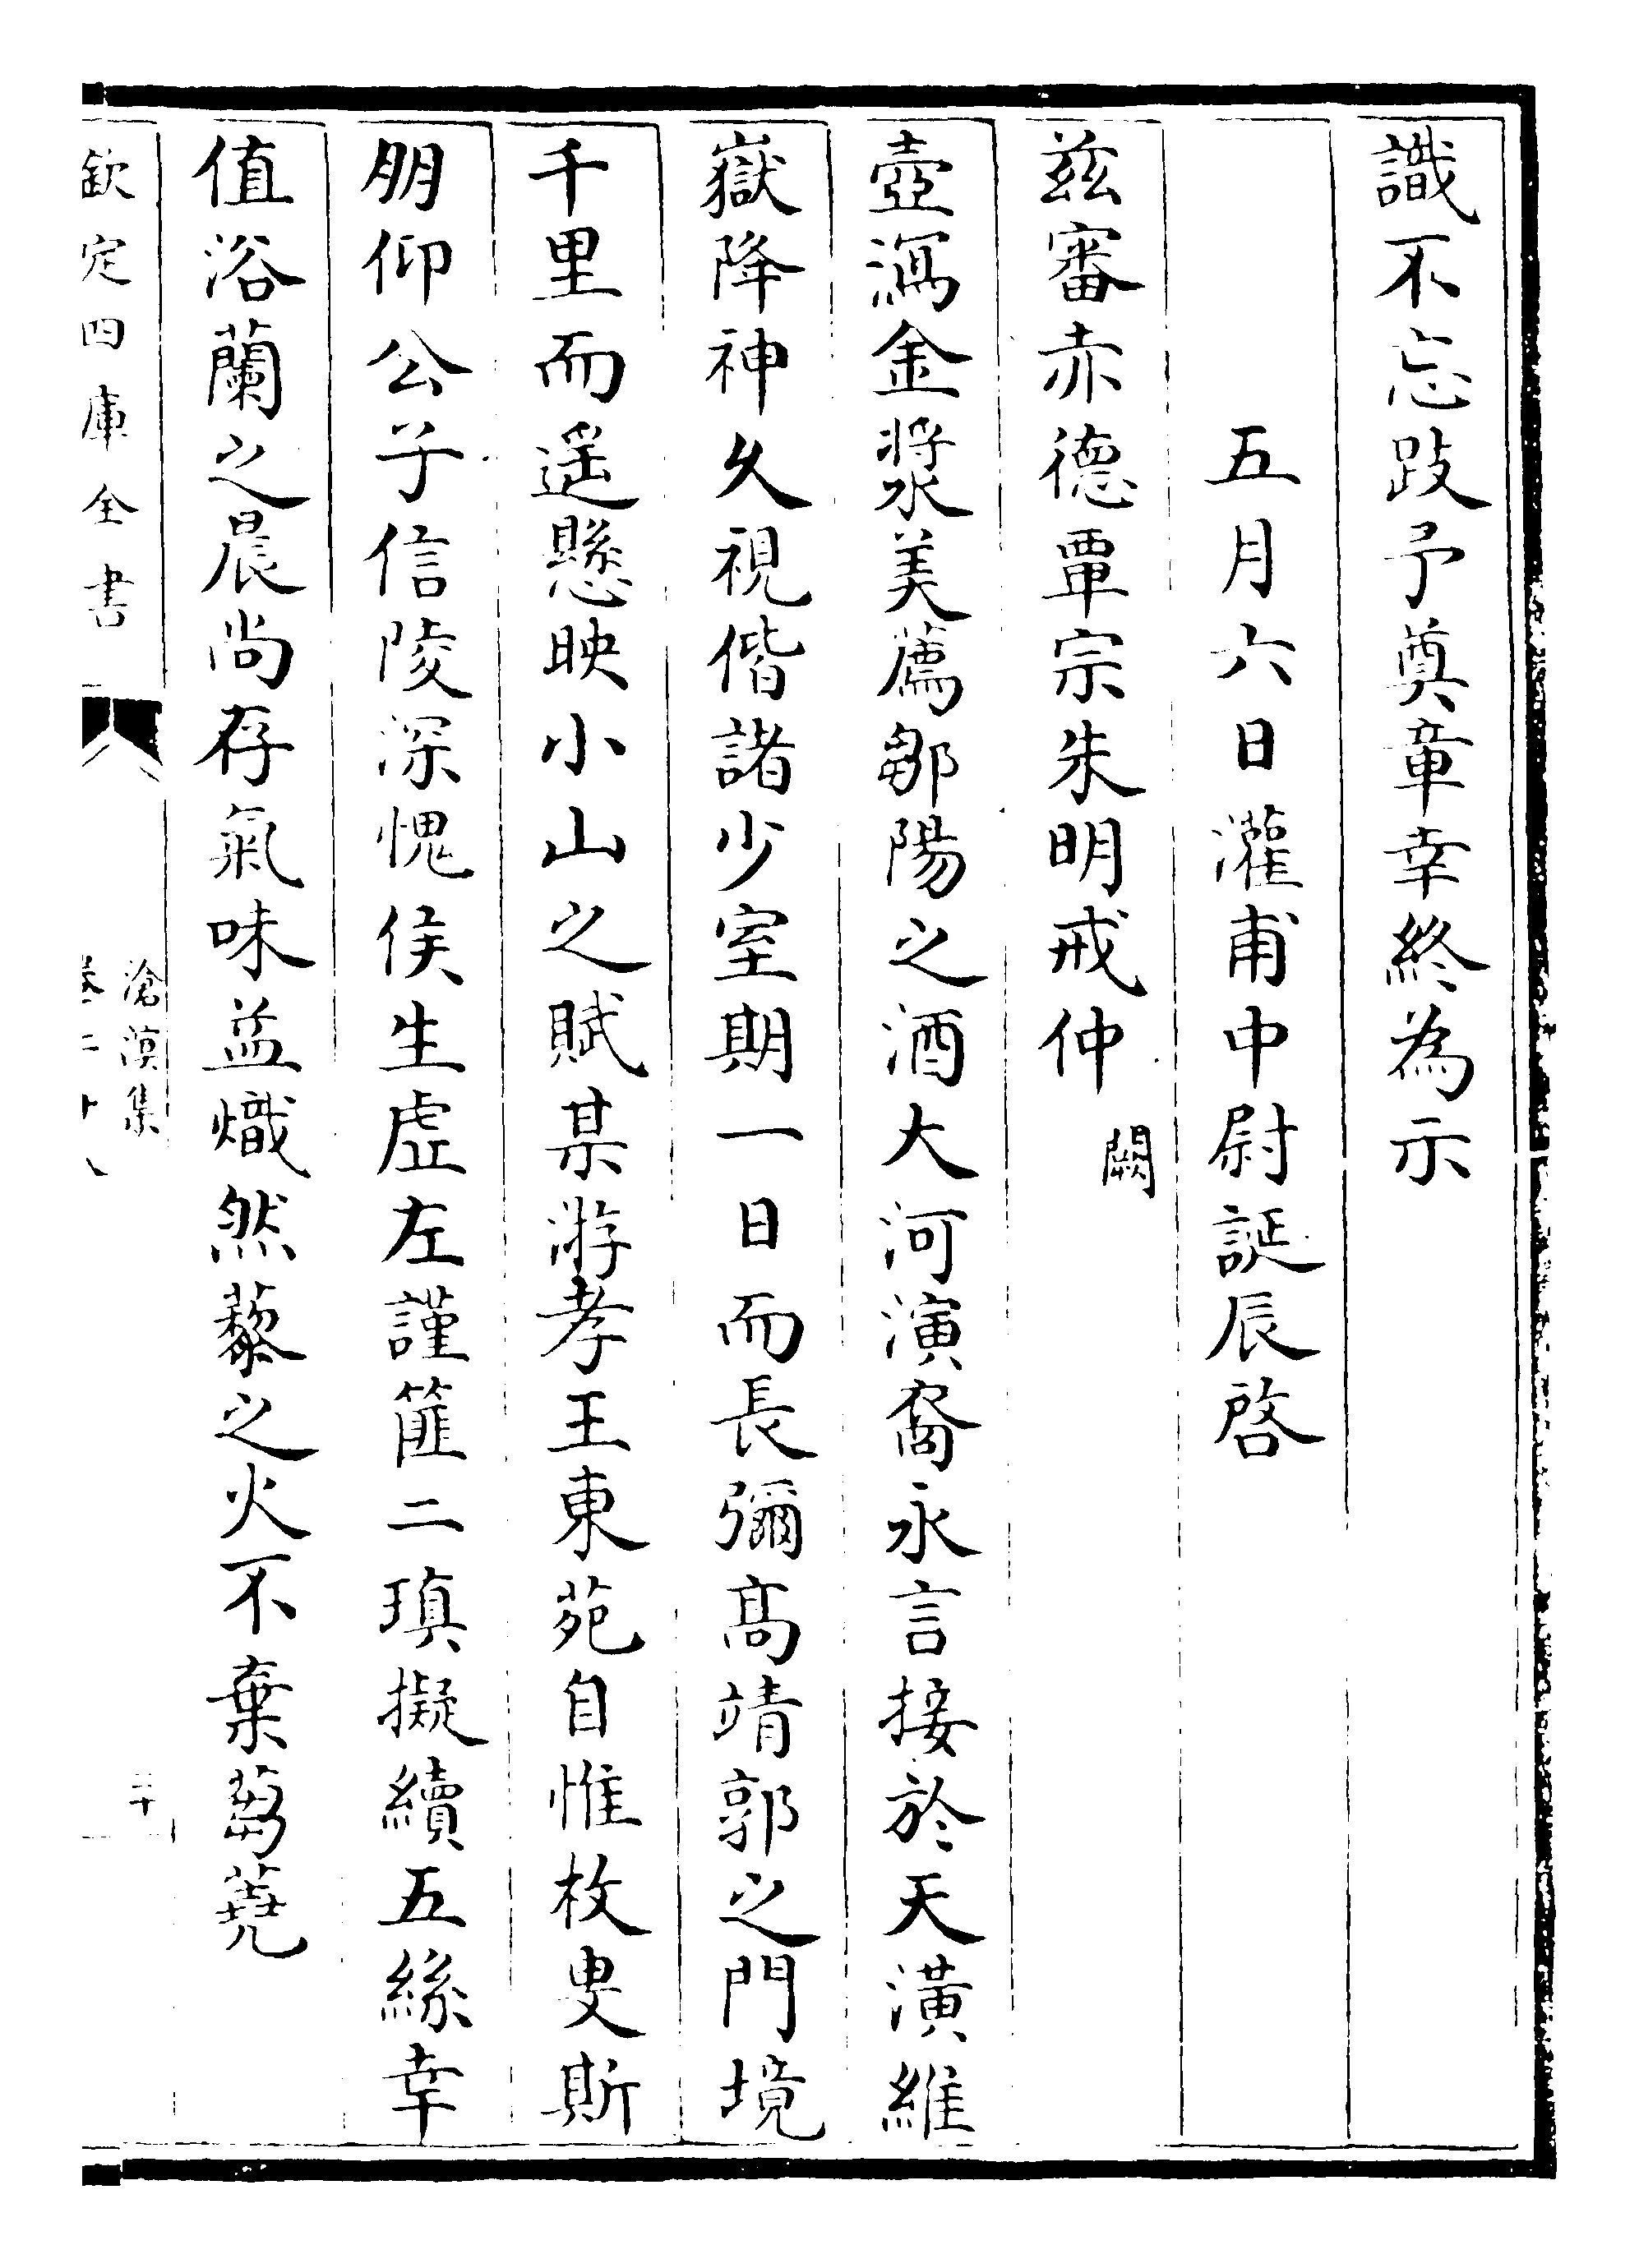 識不忘跂予奠章幸終為示
五月六日灌甫中尉誕辰啓
兹審赤德覃宗朱明戒仲闕
壺瀉金漿美薦鄒陽之酒大河演裔永言接於天潢維
嶽降神久視偕諸少室期一日而長彌高靖郭之門境
千里而遥懸映小山之賦某游孝王東苑自惟枚叟斯
朋仰公子信陵深愧侯生虚左謹篚二瑱擬續五絲幸
值浴蘭之晨尚存氣味益熾然藜之火不棄蒭蕘
欽定四庫全書
滄溟集
卷二十八
三十